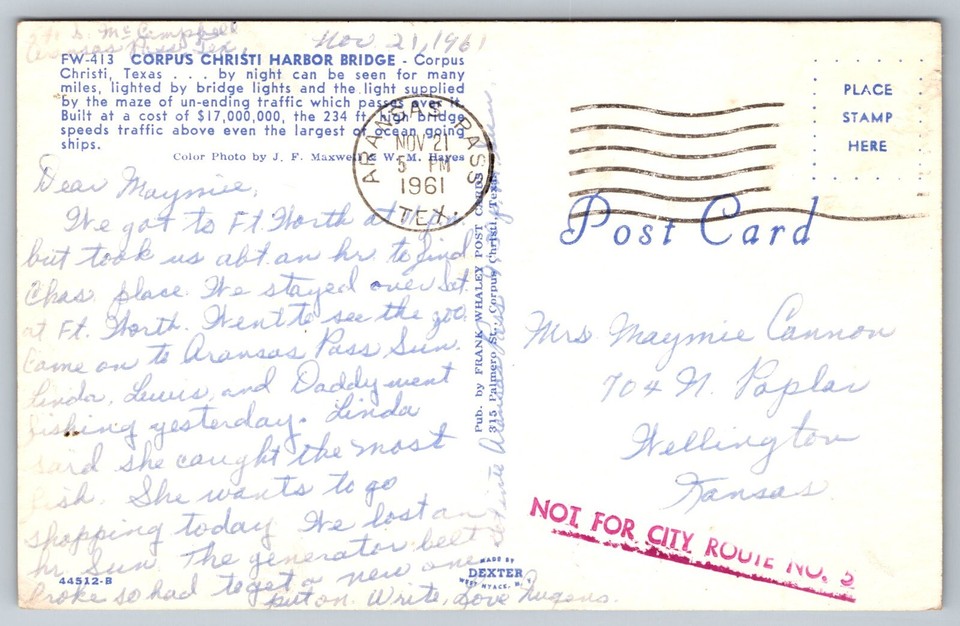 S. McCampbell
Aransas Pass Tex.
Nov. 21, 1961
FW-413 CORPUS CHRISTI HARBOR BRIDGE - Corpus
Christi, Texas . . . by night can be seen for many
miles, lighted by bridge lights and the light supplied
by the maze of un-ending traffic which passes over it.
Built at a cost of $17,000,000, the 234 ft. high bridge
speeds traffic above even the largest of ocean going
ships.
Color Photo by J. F. Maxwell & W. M. Hayes
Dear Maymie,
We got to Ft. Worth at
but took us abt. an hr. to find
Chas. place. We stayed over Sat.
at Ft. Worth. Went to see the zoo.
Came on to Aransas Pass Sun.
Linda, Lewis, and Daddy went
fishing yesterday. Linda
said she caught the most
fish. She wants to go
shopping today. We lost an
hr. Sun. The generator belt
broke so had to get a new one
put on. Write, Love
44512-B
Aransas Pass
Pub. by FRANK WHALEY POST CARDS
315 Palmero St., Corpus Christi, Texas
MADE BY
DEXTER
WEST NYACK, N. Y.
ARANSAS PASS
NOV 21
5 PM
1961
TEX.
PLACE
STAMP
HERE
Post Card
Mrs Maymie Cannon
704 N. Poplar
Wellington
Kansas.
NOT FOR CITY ROUTE NO. 5